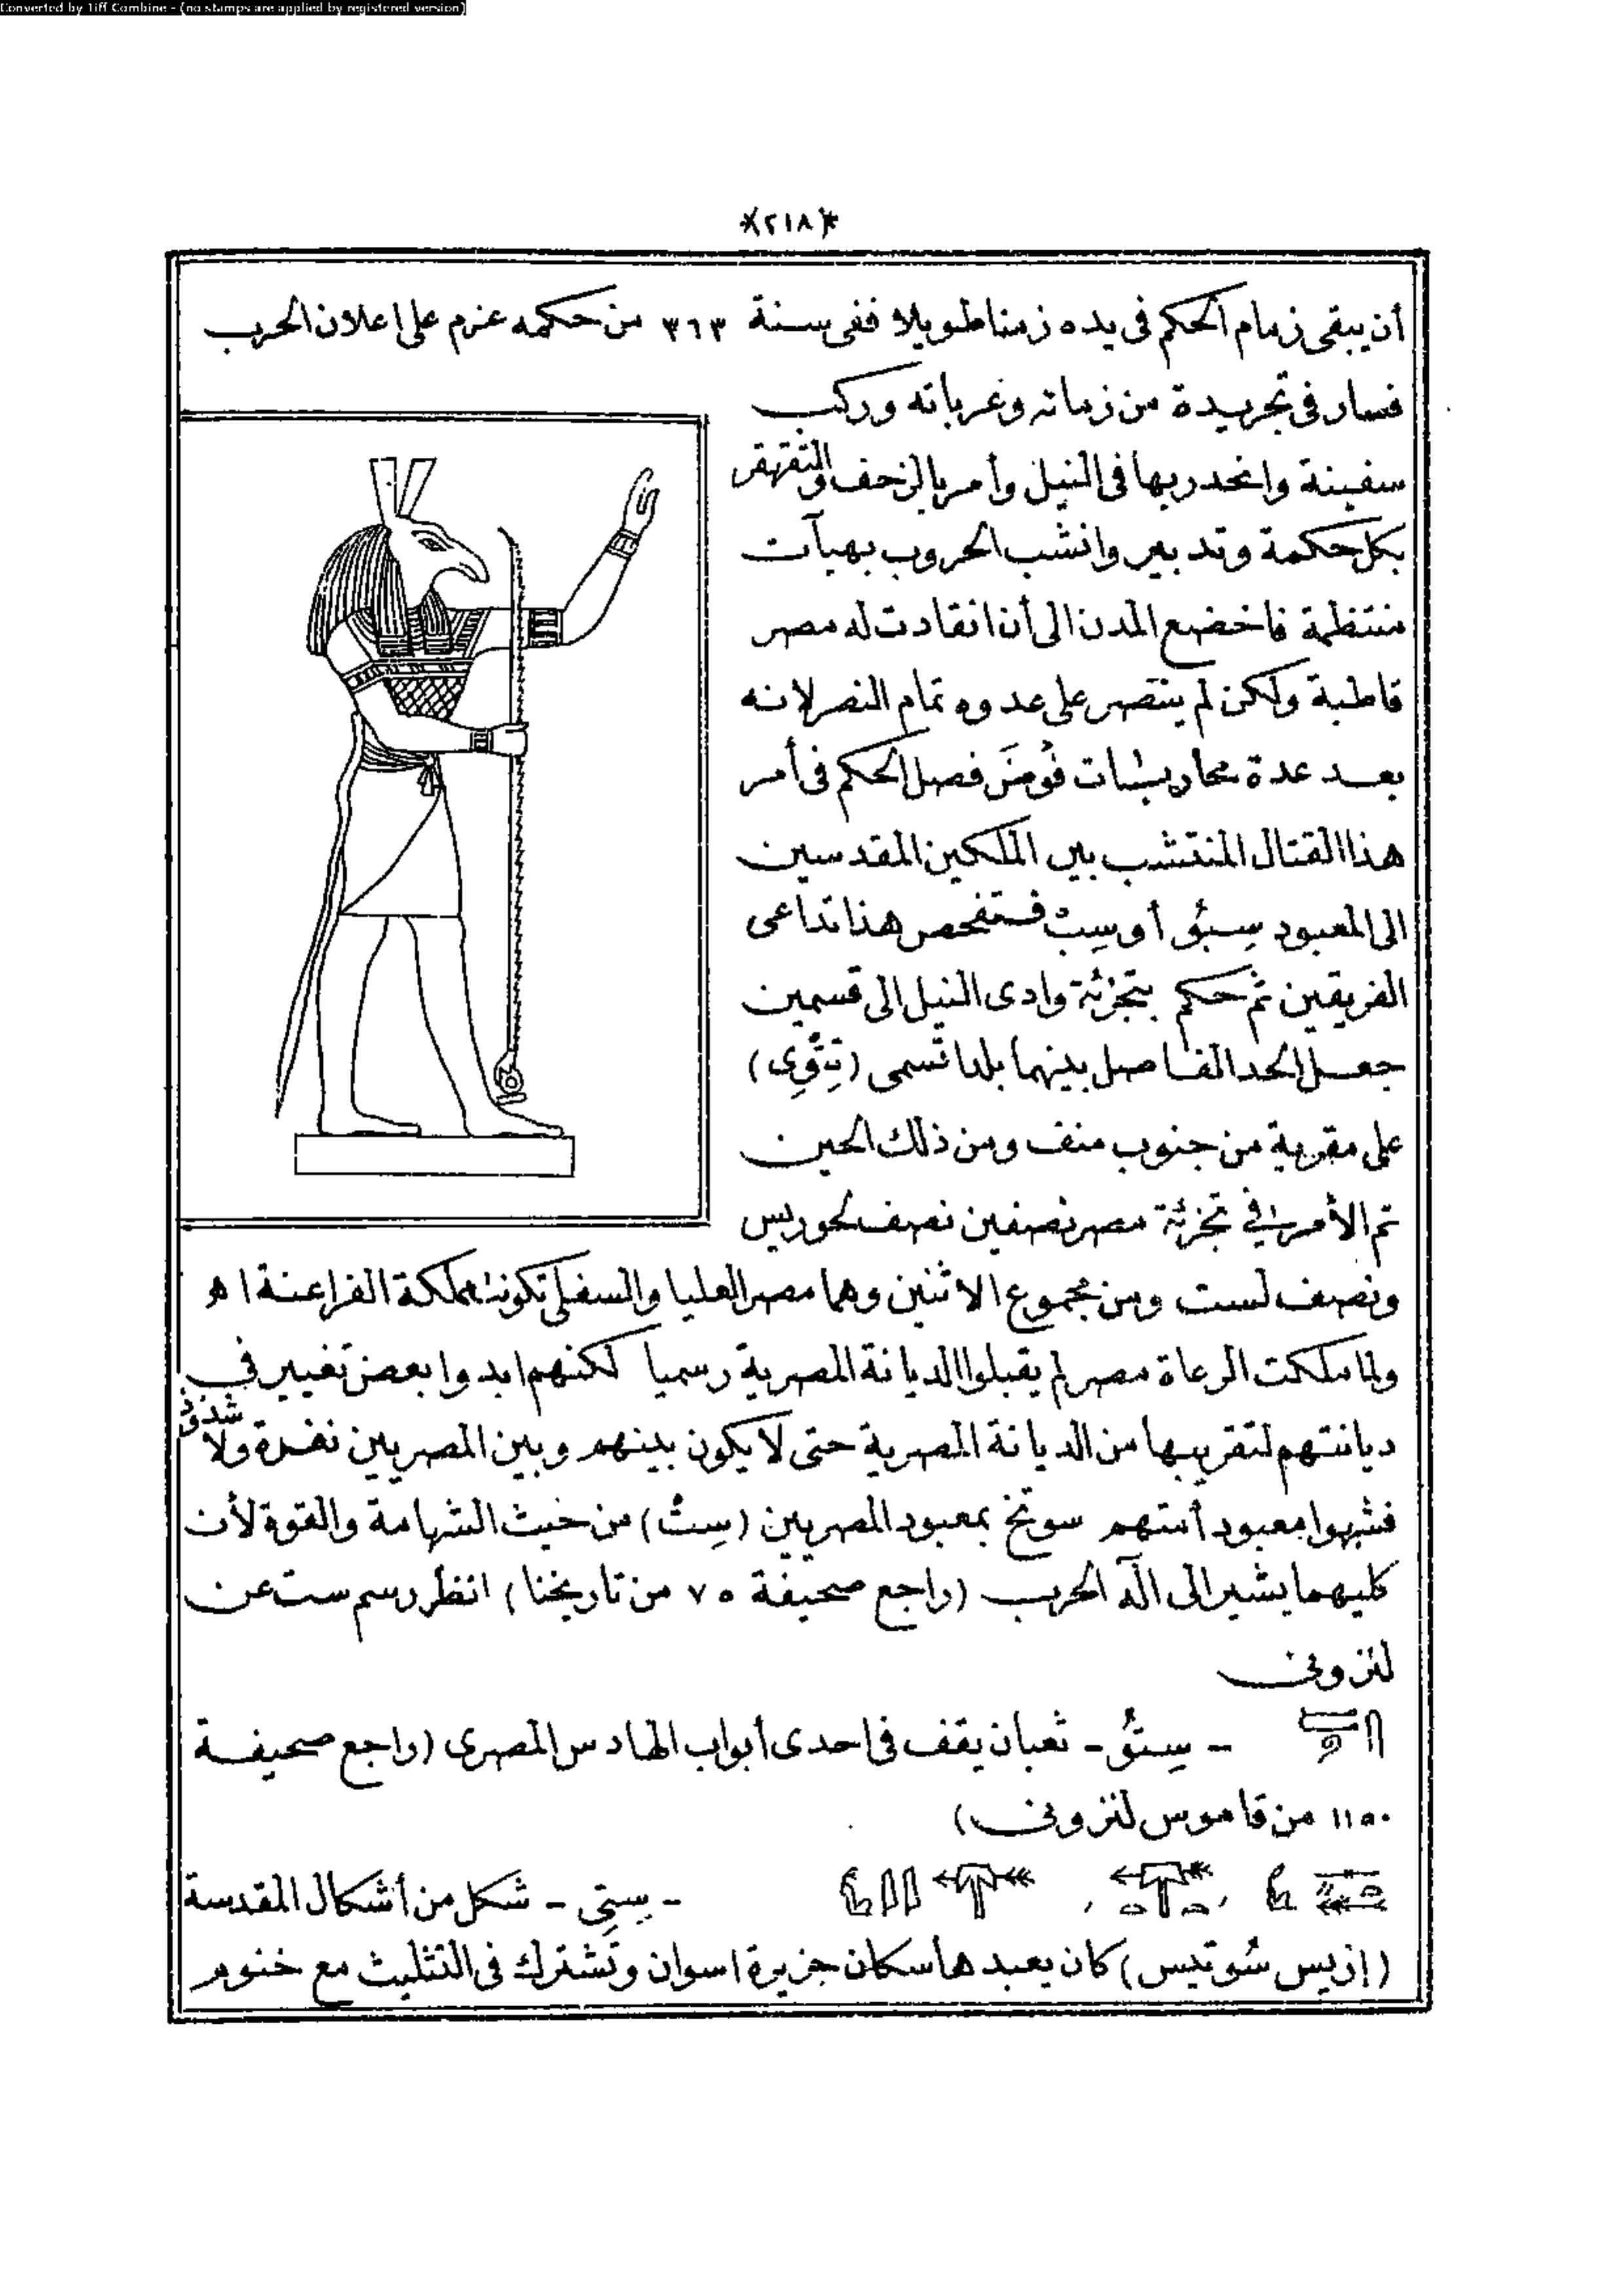 Converted by Tiff Combine - (no stamps are applied by registered version)
*(٢١٨)*
أن يبقى زمام الحكم فى يده زمنا طويلا ففى سنة ٣٦٣ من حكمه عزم على اعلان الحرب
فسار فى تجريدة من زماته وعرباته وركب
سفينة وانحدر بها فى النيل وأمر بالزحف والتقهقر
بكل حكمة وتدبير وانشب الحروب بهيآت
منتظمة فاخضع المدن الى أن انقادت له مصر
قاطبة ولكن لم ينتصر على عدوه تمام النصر لانه
بعد عدة محاربات فُوِضَ فصل الحكم فى أمر
هذا القتال المنتشب بين الملكين المقدسين
الى المعبود سِبُو أو سِبْ فتفحص هذا تداعى
الفريقين ثم حكم بتجزئة وادى النيل الى قسمين
جعل الحد الفاصل بينهما بلدا تسمى (تِتُوِى)
على مقربة من جنوب منف ومن ذلك الحين
تم الأمر فى تجزئة مصر نصفين نصف لحوريس
ونصف لست ومن مجموع الاثنين وهما مصر العليا والسفلى تكونت مملكة الفراعنة ا ه
ولما ملكت الرعاة مصر لم يقبلوا الديانة المصرية رسميا لكنهم ابدوا بعض تغيير فى
ديانتهم لتقريبها من الديانة المصرية حتى لا يكون بينهم وبين المصريين نفرة ولا
فشبهوا معبود أمتهم سوتخ بمعبود المصريين (سِتْ) من حيث الشهامة والقوة لأن
كليهما يشير الى آله الحرب (راجع صحيفة ٧٥ من تاريخنا) انظر رسم ست عن
لنزونى
- سِتُو - ثعبان يقف فى احدى أبواب الهادس المصرى (راجع صحيفة
١١٥٠ من قاموس لنزونى)
- سِتِى - شكل من أشكال المقدسة
(إزيس سُوتيس) كان يعبدها سكان جزيرة اسوان وتشترك فى التثليث مع خنوم